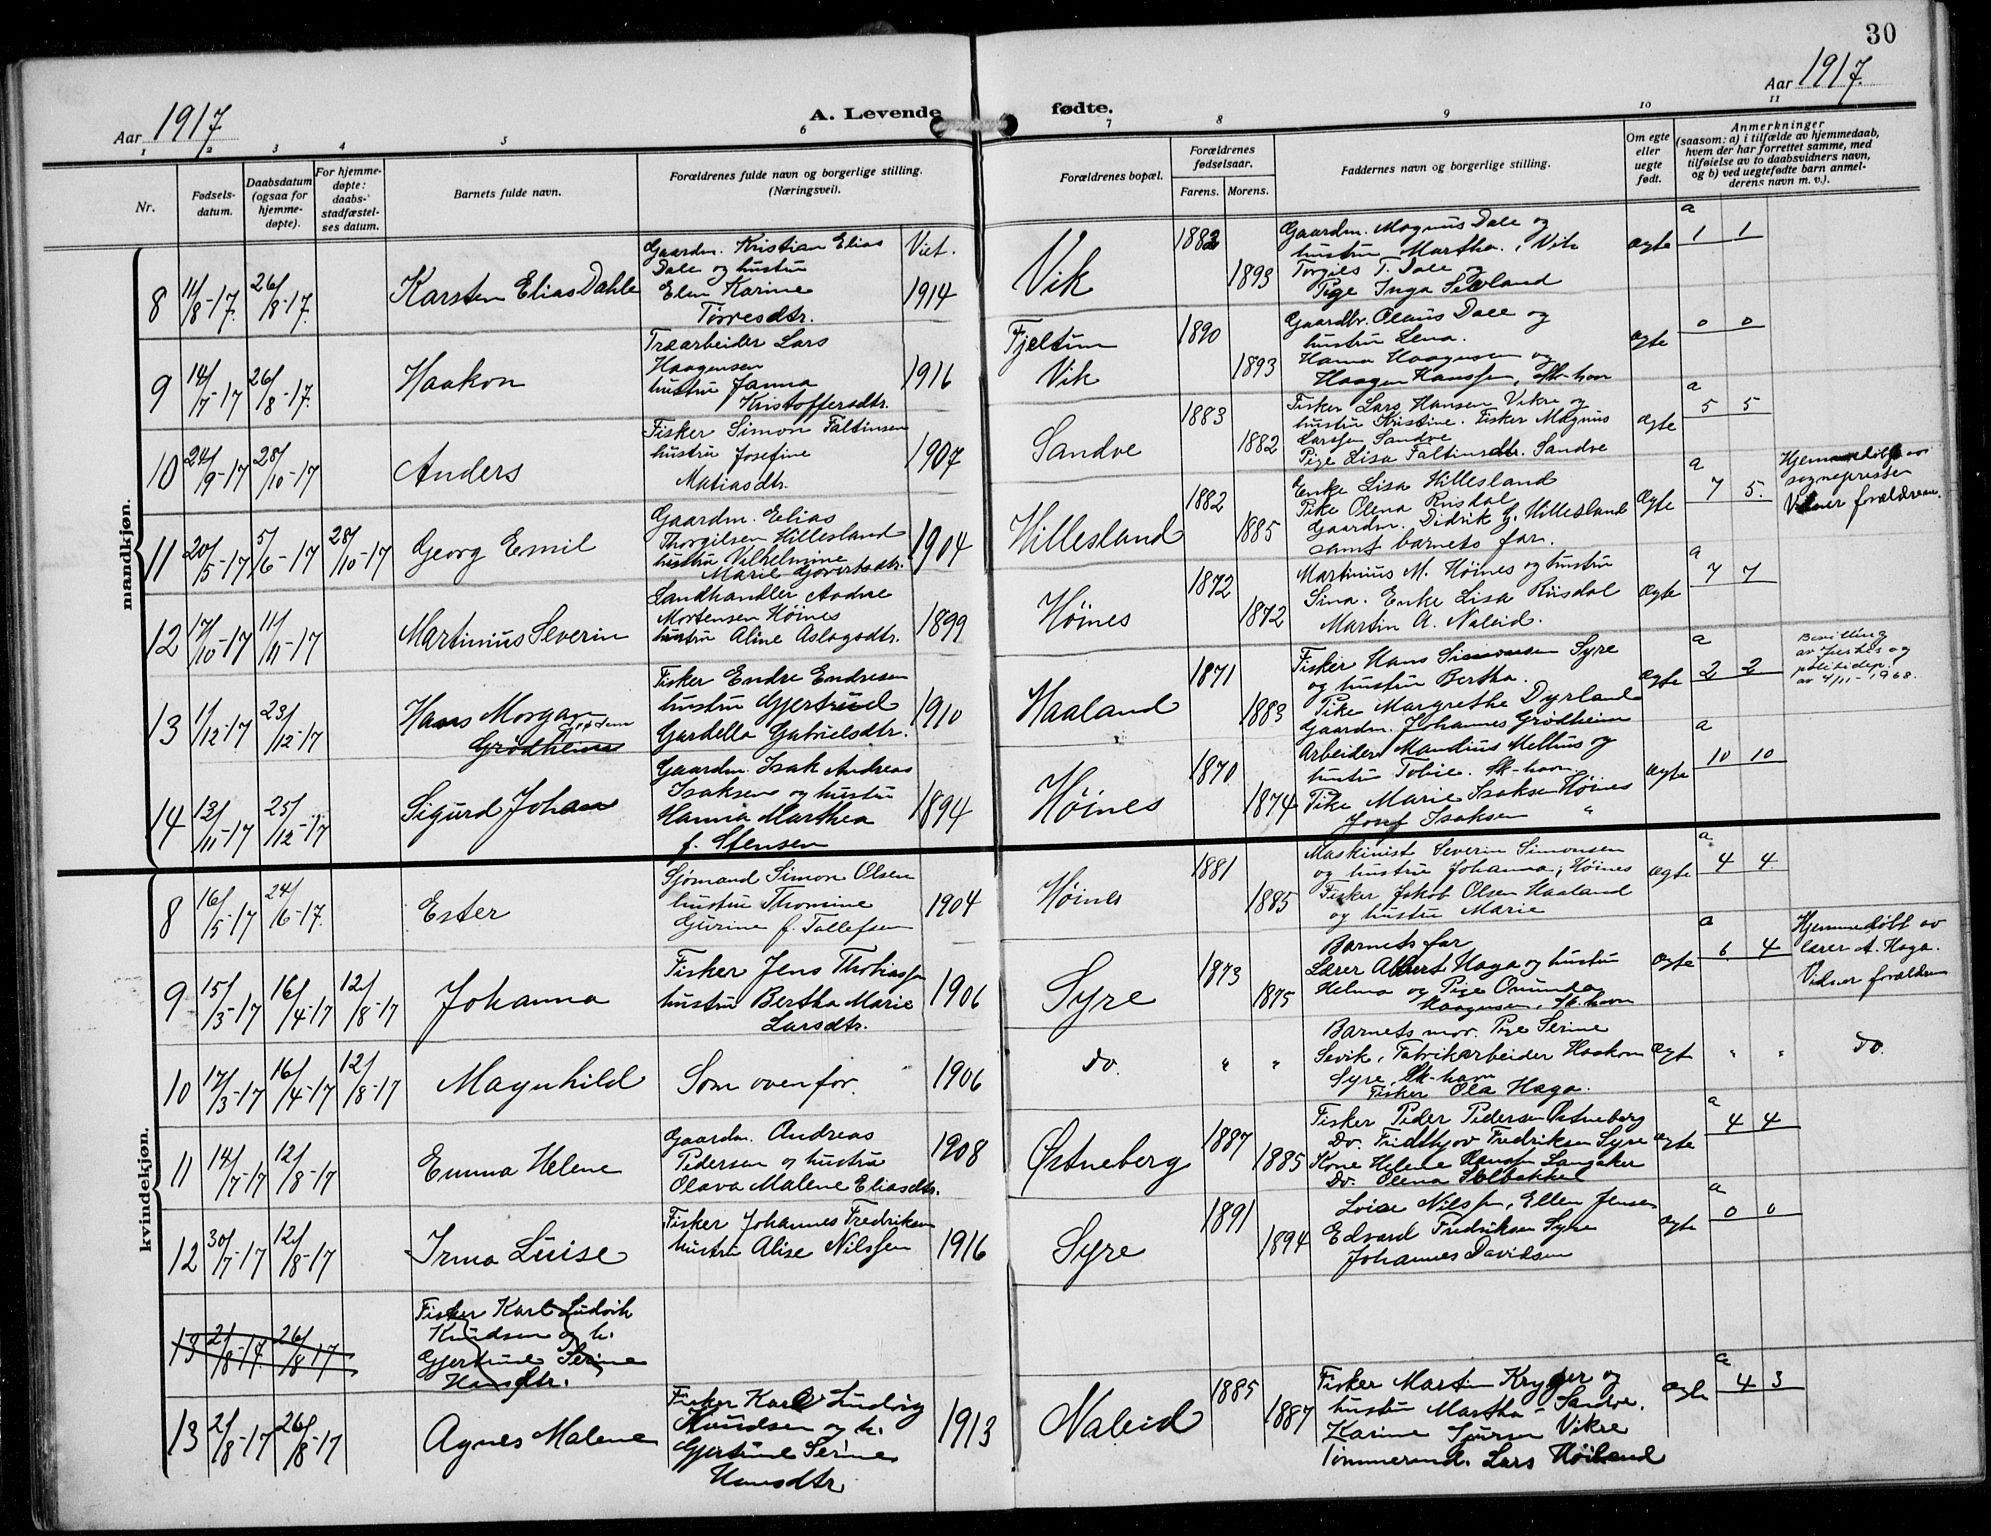 30
Aar 1917
A. Levende fødte.
Aar 1917.
1 2 3 4 5 6 7 8 9 10 11
Nr.
Fødsels-
datum.
Daabsdatum
(ogsaa for
hjemme-
døpte).
For hjemme-
døpte:
daabs-
stadfæstel-
ses datum.
Barnets fulde navn.
Forældrenes fulde navn og borgerlige stilling.
(Næringsvei).
Forældrenes bopæl.
Forældrenes
fødselsaar.
Farens. Morens.
Faddernes navn og borgerlige stilling.
Om egte
eller
uegte
født.
Anmerkninger
(saasom: a) i tilfælde av hjemmedaab,
hvem der har forrettet samme, med
tilføielse av to daabsvidners navn,
og b) ved uegtefødte barn anmel-
derens navn m. v.).
mandkjøn.
8 11/8-17. 26/8-17. Karsten Elias Dahle
Gaardm. Kristian Elias
Dale og hustru
Elen Karine
Torresdtr.
Viet.
1914
Vik
1882 1893
Gaardm. Magnus Dale og
hustru Martha, Vik
Torgils T. Dale og
Pige Inga Sevland
ægte
a
1 1
9 14/7-17 26/8-17. Haakon
Træarbeider Lars
Haagensen
hustru Janna
Kristoffersdtr.
1916
Fjeltun
Vik
1890 1893
Gaardbr. Olaus Dale og
hustru Lena.
Hanna Haagensen og
Haagen Hanssen, Sk-havn
ægte
0 0
10 24/9-17 28/10-17 Anders
Fisker Simon Faltinsen
hustru Josefine
Matiasdtr.
1907
Sandve
1883 1882
Fisker Lars Hansen Vikre og
hustru Kristine. Fisker Magnus
Larssen Sandve
Pige Lisa Faltinsdtr. Sandve
ægte
a
5 5
11 20/5-17 5/6-17 28/10-17 Georg Emil
Gaardm. Elias
Thorgilsen Hillesland
hustru Vilhelmine
Marie Govertsdtr.
1904
Hillesland
1882 1885
Enke Lisa Hillesland
Pike Olena Risdal
Gaardm. Didrik G. Hillesland
samt barnets far.
ægte
a
7 5.
Hjemmedøbt av
sognepresten
Vidner forældrene.
12 17/10-17 11/11-17 Martinius Severin
Landhandler Andne
Mortensen Høines
hustru Aline Aslagsdtr.
1899
Høines
1872 1872
Martinius M. Høines og hustru
Sina. Enke Lisa Riisdal
Martin A. Naleid.
ægte
a
7 7
13 1/12-17 23/12-17 Hans Morgan
Grødem
Grødheim
Fisker Endre Endresen
hustru Gjertrud
Gardella Gabrielsdtr.
1910
Haaland
1871 1883
Fisker Hans Simonsen Syre
og hustru Bertha.
Pike Margrethe Dyrland
Gaardm. Johannes Grødheim
ægte
a
2 2
Bevilling
av Justis og
politidep.
av 4/11-1968.
14 13/11-17 25/12-17 Sigurd Johan
Gaardm. Isak Andreas
Isaksen og hustru
Hanna Marthea
f. Stensen
1894
Høines
1870 1874
Arbeider Mandius Melhus og
hustru Tobie. Sk-havn
Pike Marie Isaksen Høines
Josef Isaksen "
ægte
a
10 10
kvindekjøn.
8 16/5-17 24/6-17. Ester
Sjømand Simon Olsen
hustru Thomine
Gurine f. Tollefsen
1904
Høines
1881 1885
Maskinist Severin Simonsen
og hustru Johanna, Høines
Fisker Jakob Olsen Haaland
og hustru Marie
ægte
a
4 4
9 15/3-17 16/4-17 12/8-17 Johanna
Fisker Jens Thobiassen
hustru Bertha Marie
Larsdtr.
1906
Syre
1873 1875
Barnets far
Lærer Albert Haga og hustru
Helma og Pige Omunda
Haagensen, Sk-havn
ægte
a
6 4
Hjemmedøbt av
lærer A. Haga.
Vidner forældrene
10 17/3-17 16/4-17 12/8-17 Magnhild
Som ovenfor.
1906
do.
" "
Barnets mor. Pige Serine
Sevik, Fabrikarbeider Haakon
Syre, Sk-havn
Fisker Ola Haga.
ægt
" "
do.
11 14/7-17 12/8-17 Emma Helene
Gaardm. Andreas
Pedersen og hustru
Olava Malene Eliasdtr.
1908
Østneberg
1887 1885
Fisker Peder Pedersen Østneberg
Do. Fridthjov Fredriksen Syre
Kone Helene Hanssen Langaker
Do. Olena Solbakken
ægte
a
4 4
12 30/7-17 12/8-17 Irma Luise
Fisker Johannes Fredriksen
hustru Alise Nilssen
1916
Syre
1891 1894
Lovise Nilssen, Ellen Jensen
Edvard Fredriksen Syre
Johannes Davidsen
ægte
a
0 0
13 2/8-17. 26/8-17
Fisker Karl Ludvik
Knudsen og h.
Gjertrude Serine
Hansdtr.
13 2/8-17 26/8-17 Agnes Malene
Fisker Karl Ludvig
Knudsen og h.
Gjertrude Serine
Hansdtr
1913
Naleid
1885 1887
Fisker Martin Kryger og
hustru Martha - Sandve.
Karine Sjursen Vikre
Tømmermd. Lars Høiland
ægte
a
4 3